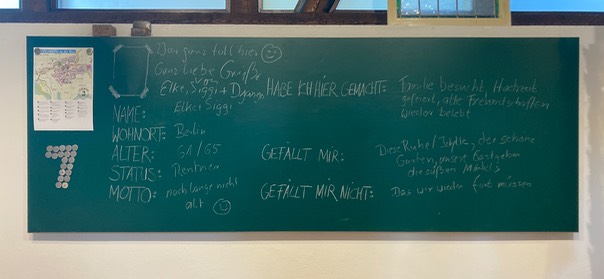 War ganz toll hier
Ganz liebe Grüße
von
Elke, Siggi + Django
NAME: Elke, Siggi
WOHNORT: Berlin
ALTER: 61/65
STATUS: Rentner
MOTTO: noch lange nicht
alt
7
HABE ICH HIER GEMACHT: Familie besucht, Hochzeit
gefeiert, alte Freundschaften
wieder belebt
GEFÄLLT MIR: Diese Ruhe/Idylle, der schöne
Garten, unsere Gastgeber
die süßen Mädels
GEFÄLLT MIR NICHT: Das wir wieder fort müssen